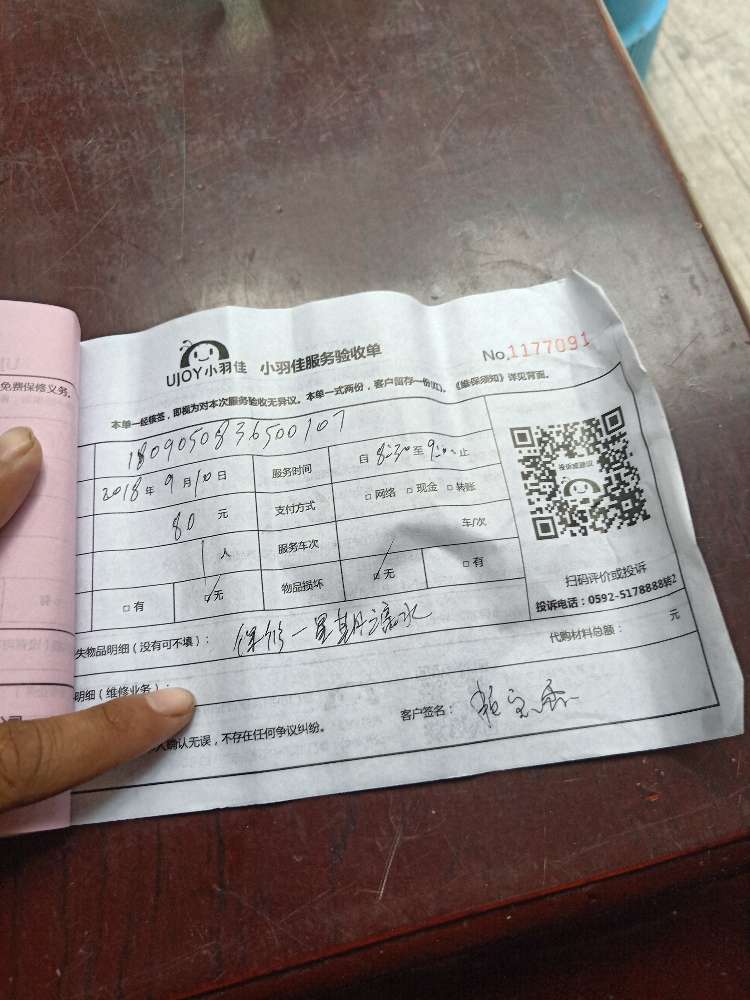 免费保修义务。
UJOY小羽佳 小羽佳服务验收单
No.1177091
本单一经核签，即视为对本次服务验收无异议。本单一式两份，客户留存一份(红)。《维保须知》详见背面。
1809050836500107
2018年9月10日 服务时间 自8:30至9:00止
80元 支付方式 □网络 □现金 □转账
1人 服务车次 车/次
□有 □无 物品损坏 □无 □有
投诉或建议
扫码评价或投诉
投诉电话：0592-5178888转2
失物品明细（没有可不填）： 保修一星期滴水
代购材料总额： 元
明细（维修业务）：
人确认无误，不存在任何争议纠纷。
客户签名：
公司